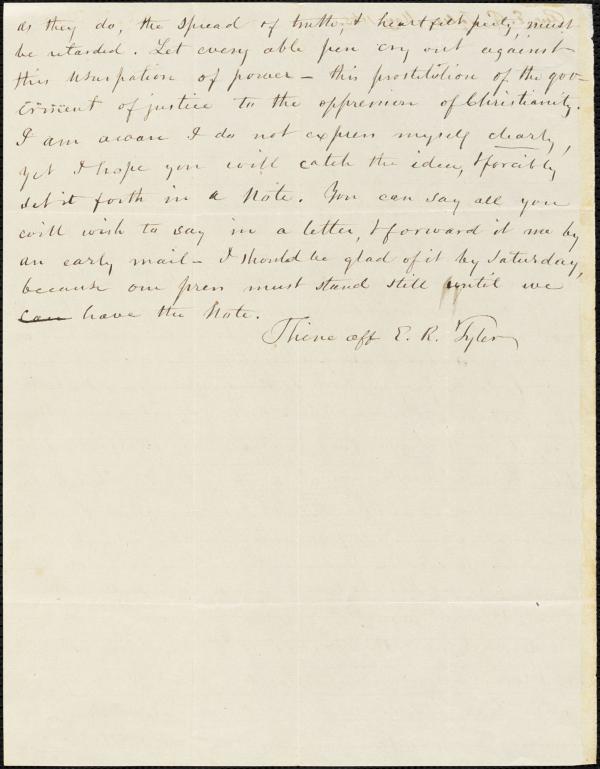 as they do, the spread of truth, & heartfelt piety, must
be retarded. Let every able pen cry out against
this usurpation of power – this prostitution of the gov-
ernment of justice to the oppression of Christianity.
I am aware I do not express myself clearly,
yet I hope you will catch the idea, & forcibly
set it forth in a Note. You can say all you
will wish to say in a letter, & forward it me by
an early mail – I should be glad of it by Saturday,
because our press must stand still until we
can have the Note.
Thine aff E. R. Tyler